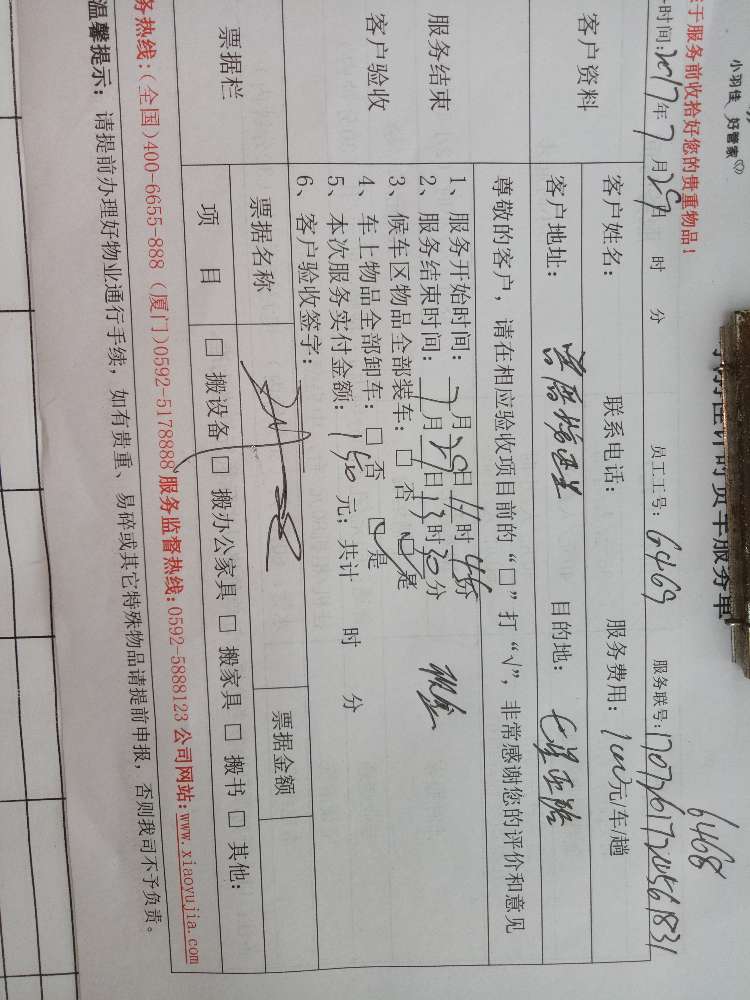 小羽佳 好管家
羽佳计时货车服务单
于服务前收拾好您的贵重物品!
6468
时间:2017年7月29日 时 分 员工工号:6469 服务联号:
客户资料
客户姓名: 联系电话: 服务费用:100元/车/趟
客户地址: 目的地:
服务结束
客户验收
尊敬的客户,请在相应验收项目前的“□”打“√”,非常感谢您的评价和意见
1、服务开始时间:7月29日11时45分
2、服务结束时间:7月29日13时30分 现金
3、候车区物品全部装车:□ 否 ☑ 是
4、车上物品全部卸车:□ 否 ☑ 是
5、本次服务实付金额:150元;共计 时 分
6、客户验收签字:
票据栏
票据名称 票据金额
项 目 □ 搬设备 □ 搬办公家具 □ 搬家具 □ 搬书 □ 其他:
务热线:(全国)400-6655-888 (厦门)0592-5178888 服务监督热线:0592-5888123 公司网站:www.xiaoyujia.com
温馨提示: 请提前办理好物业通行手续,如有贵重、易碎或其它特殊物品请提前申报,否则我司不予负责。